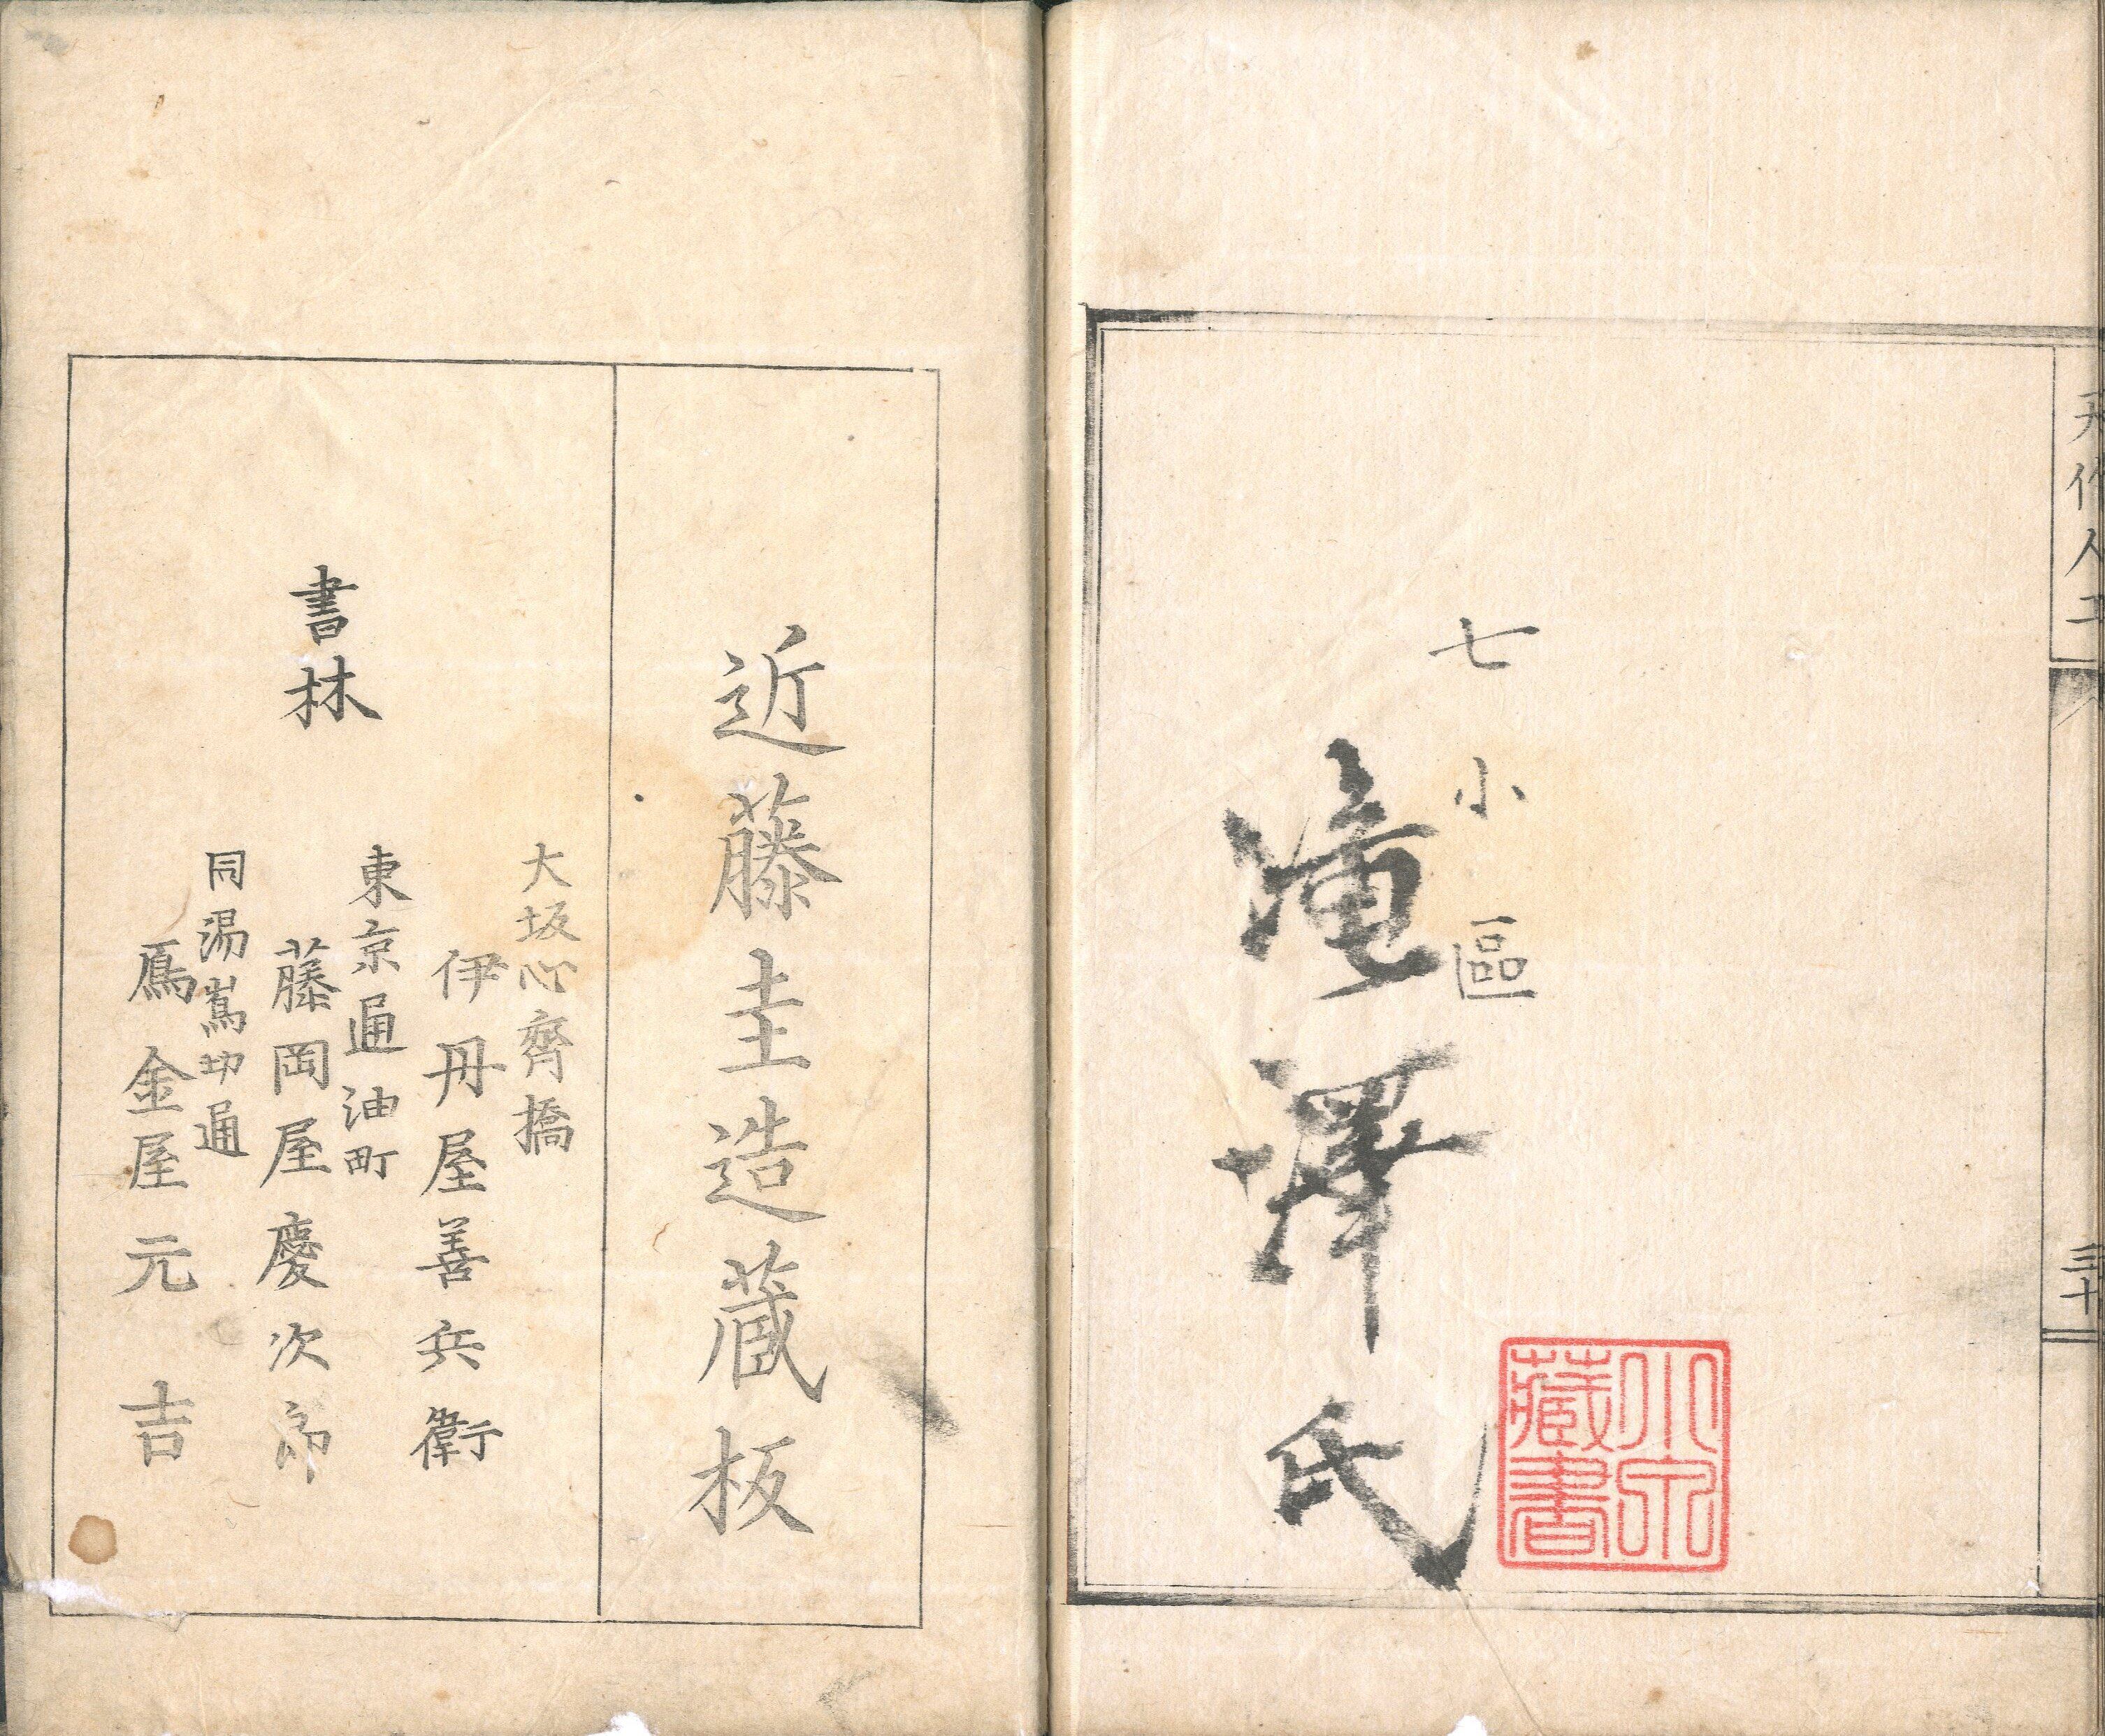 天作人工
三十
七小區
滝澤氏
小宍藏書
近藤圭造蔵板
書林
大坂心齊橋
伊丹屋善兵衛
東京通油町
藤岡屋慶次郎
同湯嶌切通
鳫金屋元吉